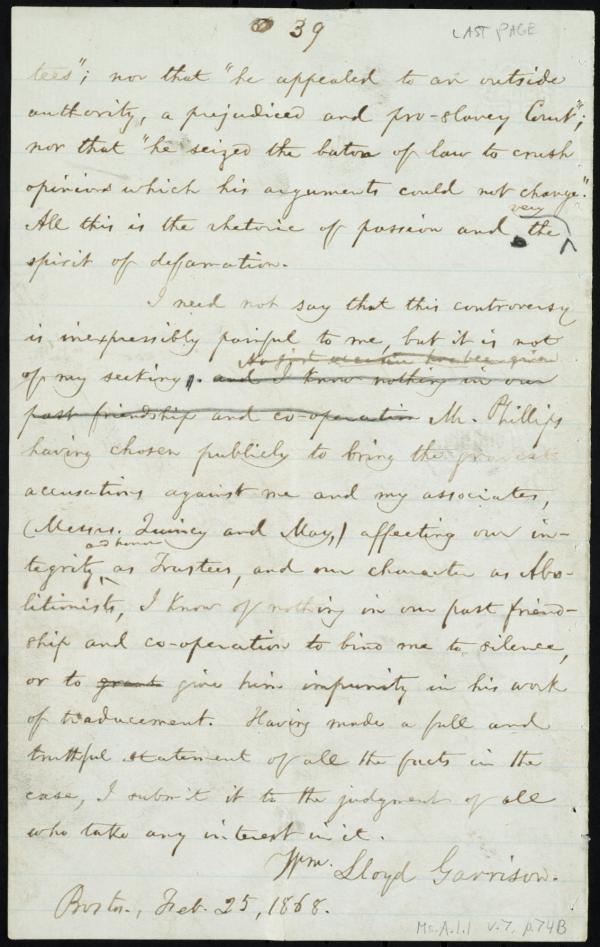 39
LAST PAGE
tees"; nor that "he appealed to an outside
authority, a prejudiced and pro-slavery Court";
nor that "he seized the baton of law to crush
opinions which his arguments could not change."
very
All this is the rhetoric of passion and the
spirit of defamation.
I need not say that this controversy
is inexpressibly painful to me, but it is not
No just occasion has been given
of my seeking. and I know nothing in our
past friendship and co-operation Mr. Phillips
having chosen publicly to bring the gravest
accusations against me and my associates,
(Messrs. Quincy and May,) affecting our in-
and honor
tegrity, as Trustees, and our character as Abo-
litionists, I know of nothing in our past friend-
ship and co-operation to bind me to silence,
or to grant give him impunity in his work
of traducement. Having made a full and
truthful statement of all the facts in the
case, I submit it to the judgment of all
who take any interest in it.
Wm. Lloyd Garrison.
Boston, Feb. 25, 1868.
Ms.A.1.1 v.7, p.74B